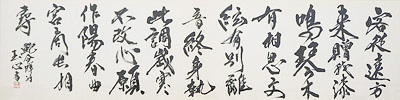 客從遠方
来贈我漆
鳴琴木
有相思文
絃有別離
音終身執
此調歲寒
不改心願
作陽春曲
宮商長相
尋